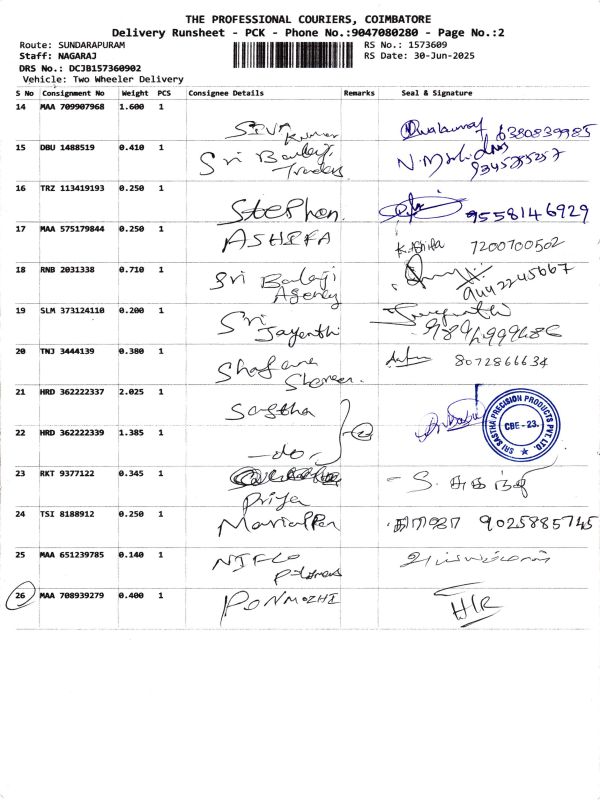 THE PROFESSIONAL COURIERS, COIMBATORE
Delivery Runsheet - PCK - Phone No.:9047080280 - Page No.:2
Route: SUNDARAPURAM RS No.: 1573609
Staff: NAGARAJ RS Date: 30-Jun-2025
DRS No.: DCJB157360902
Vehicle: Two Wheeler Delivery
S No Consignment No Weight PCS Consignee Details Remarks Seal & Signature
14 MAA 709907968 1.600 1
Siva Kumar 6380839985
15 DBU 1488519 0.410 1
Sri Balaji Traders
16 TRZ 113419193 0.250 1
Stephen. 9558146929
17 MAA 575179844 0.250 1
ASHIFA K. Ashifa 7200700502
18 RNB 2031338 0.710 1
Sri Balaji Agency 9442245667
19 SLM 373124110 0.200 1
Sri Jayenthi
20 TNJ 3444139 0.380 1
8072866634
21 HRD 362222337 2.025 1
Sastha
SRI SASTHA PRECISION PRODUCTS PVT. LTD.
CBE - 23.
22 HRD 362222339 1.385 1
-do- 2
23 RKT 9377122 0.345 1
Priya
24 TSI 8188912 0.250 1
9025885745
25 MAA 651239785 0.140 1
26 MAA 708939279 0.400 1
PONMOZHI